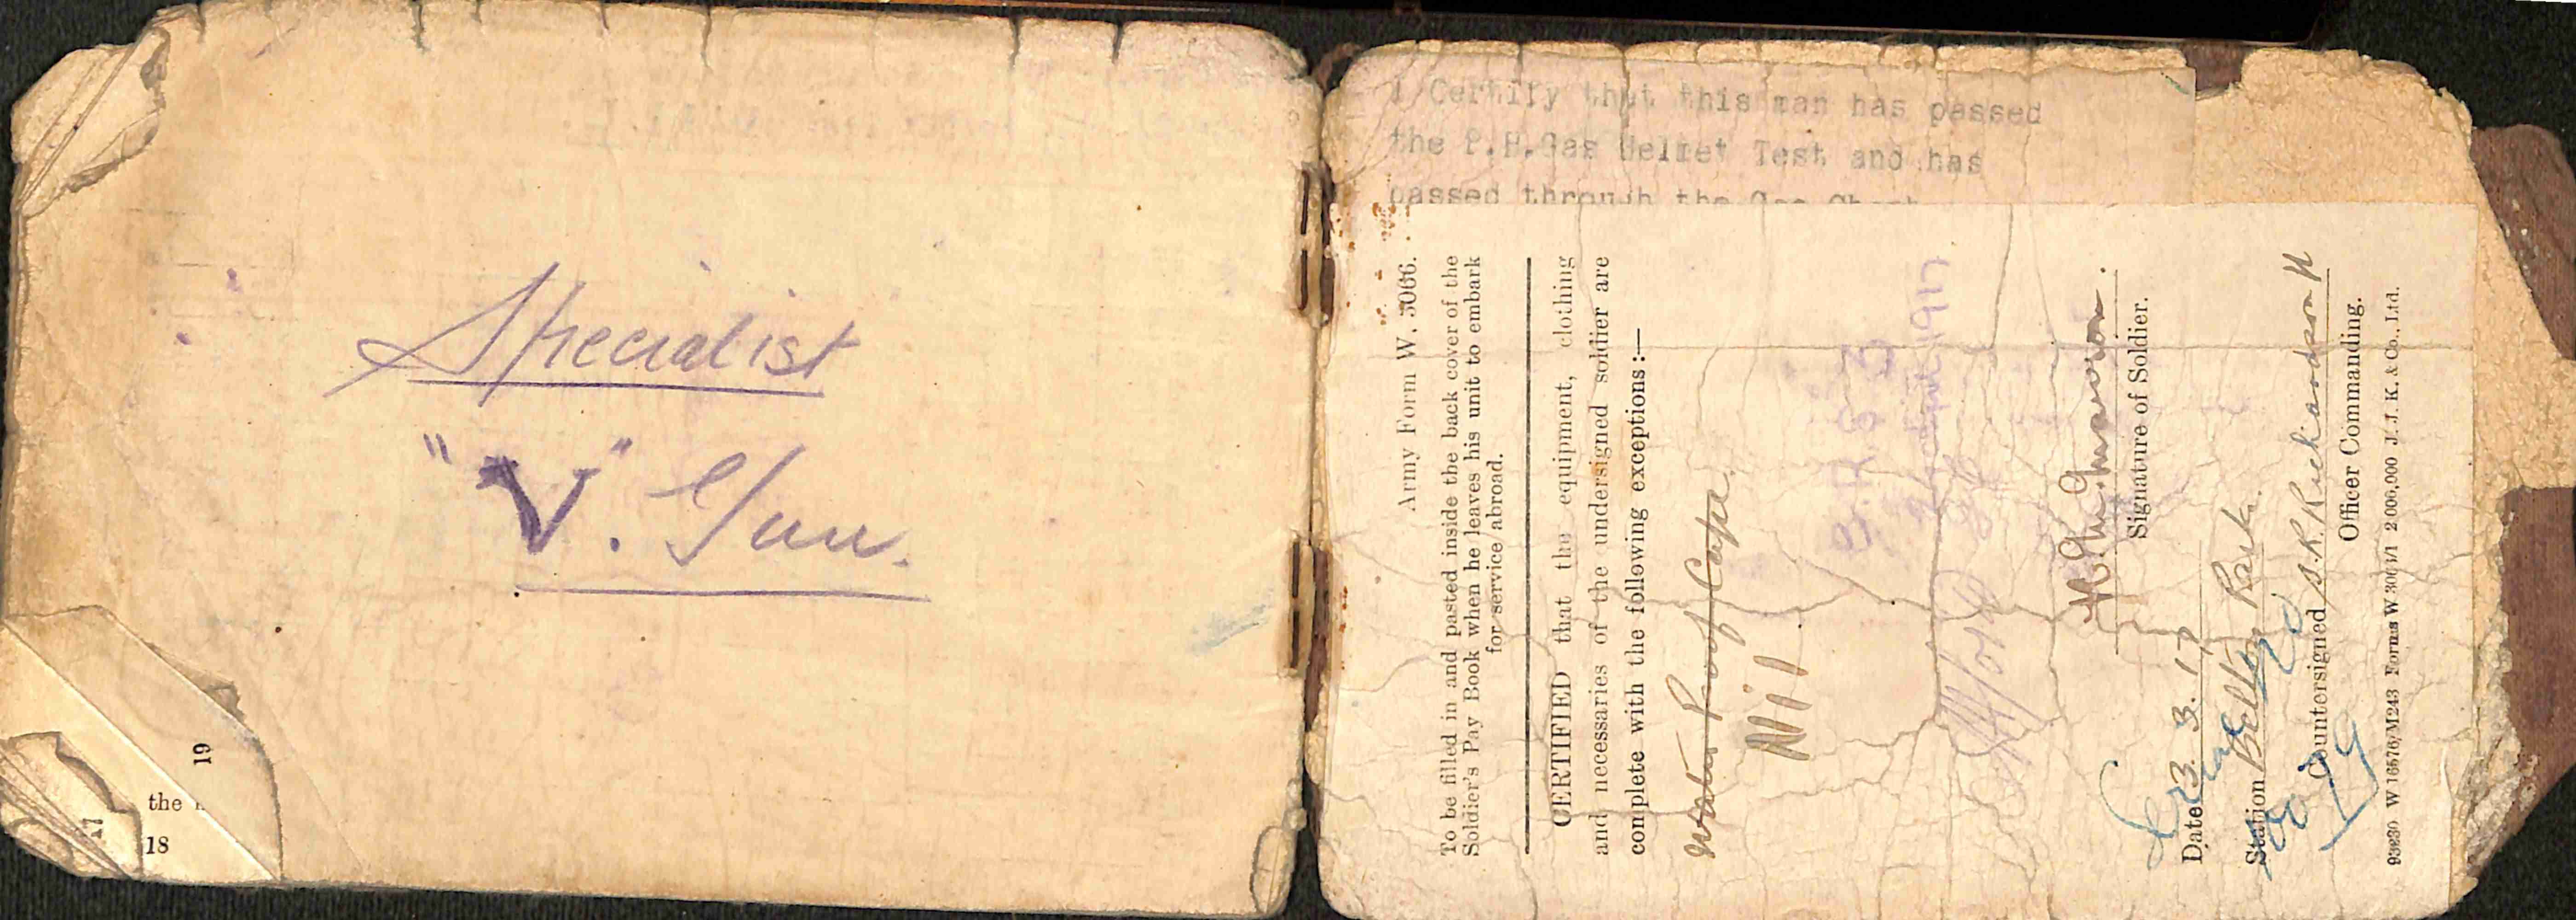 Specialist
"V". Gun.
19
the
18
17
I Certify that this man has passed
the P.H.Gas Helmet Test and has
passed through the Gas
Army Form W. 5066.
To be filled in and pasted inside the back cover of the
Soldier's Pay Book when he leaves his unit to embark
for service abroad.
CERTIFIED that the equipment, clothing
and necessaries of the undersigned soldier are
complete with the following exceptions:—
Water Proof Cape
Nil
1917
Signature of Soldier.
Date 3. 3. 17
Station Belton Park
Countersigned S.R. Richardson
Officer Commanding.
93230 W 16576/M243 Forms W 3066/1 2,000,000 J. J. K. & Co., Ltd.